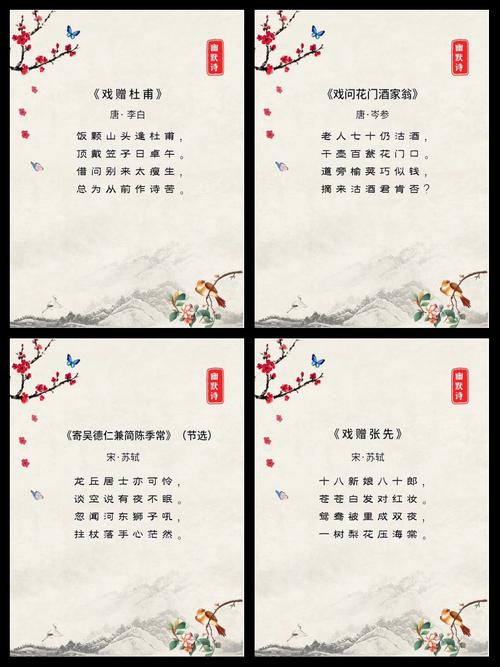 幽默诗
《戏赠杜甫》
唐·李白
饭颗山头逢杜甫，
顶戴笠子日卓午。
借问别来太瘦生，
总为从前作诗苦。
幽默诗
《戏问花门酒家翁》
唐·岑参
老人七十仍沽酒，
千壶百瓮花门口。
道旁榆荚巧似钱，
摘来沽酒君肯否？
幽默诗
《寄吴德仁兼简陈季常》（节选）
宋·苏轼
龙丘居士亦可怜，
谈空说有夜不眠。
忽闻河东狮子吼，
拄杖落手心茫然。
幽默诗
《戏赠张先》
宋·苏轼
十八新娘八十郎，
苍苍白发对红妆。
鸳鸯被里成双夜，
一树梨花压海棠。